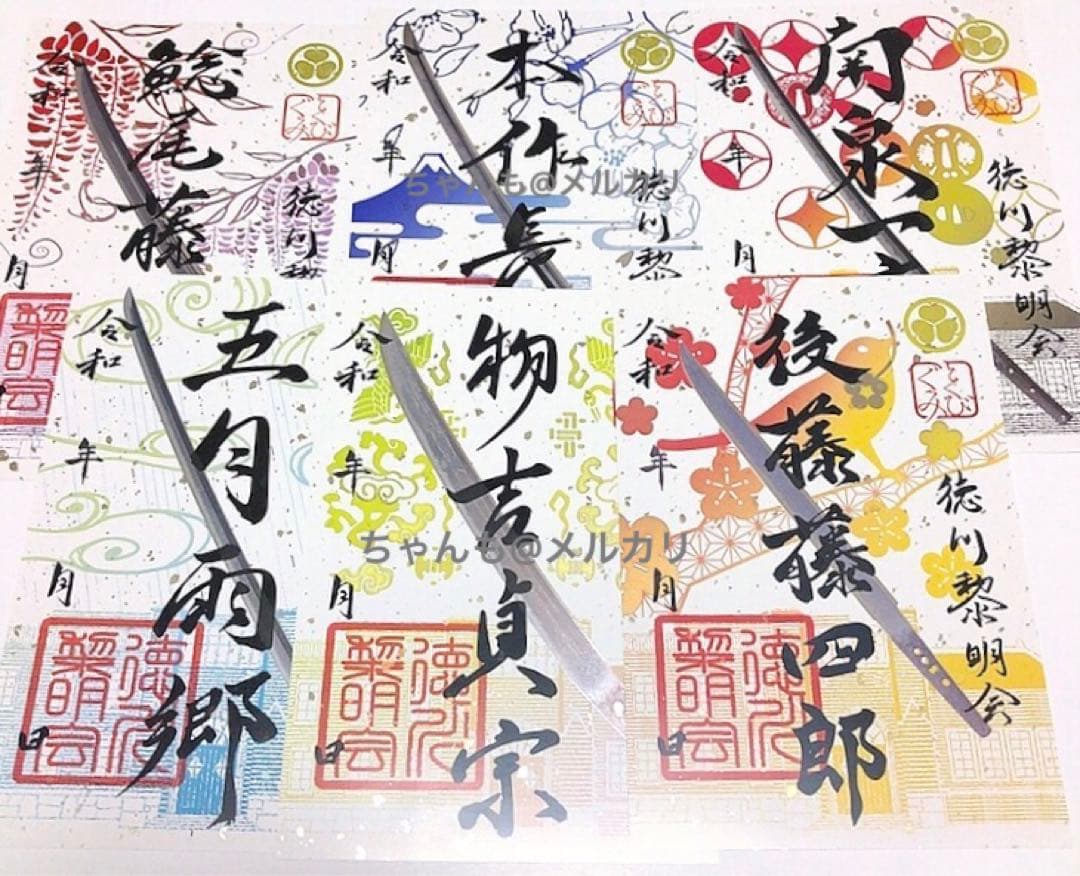 鯰尾藤
徳川黎
令和
年
月
本作長
徳川黎
令和
年
月
ちゃんも@メルカリ
南泉一
徳川黎明会
令和
年
月
黎明会
五月雨郷
令和
年
月
日
徳川黎明会
物吉貞宗
令和
年
月
日
徳川黎明会
ちゃんも@メルカリ
後藤藤四郎
とくびぐみ
徳川黎明会
令和
年
月
日
徳川黎明会